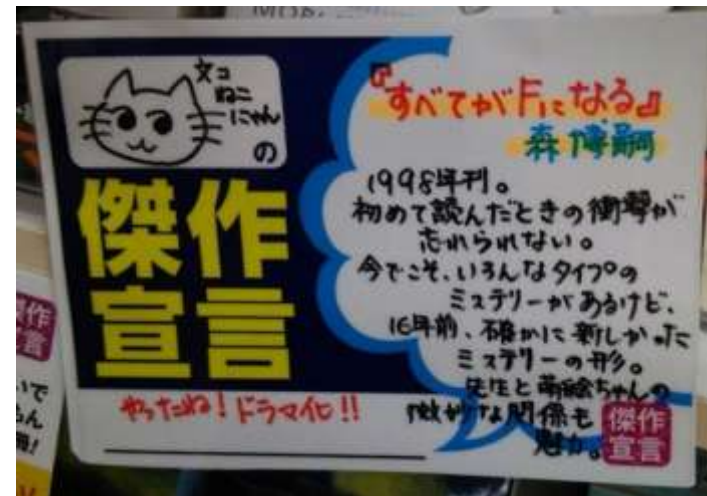 文コ
ねこ
にゃん
の
傑作
宣言
やったね!ドラマ化!!
『すべてがFになる』
森博嗣
1998年刊。
初めて読んだときの衝撃が
忘れられない。
今でこそ、いろんなタイプの
ミステリーがあるけど、
16年前、確かに新しかった
ミステリーの形。
先生と萌絵ちゃんの
微妙な関係も
魅力。
傑作
宣言
傑作
宣言